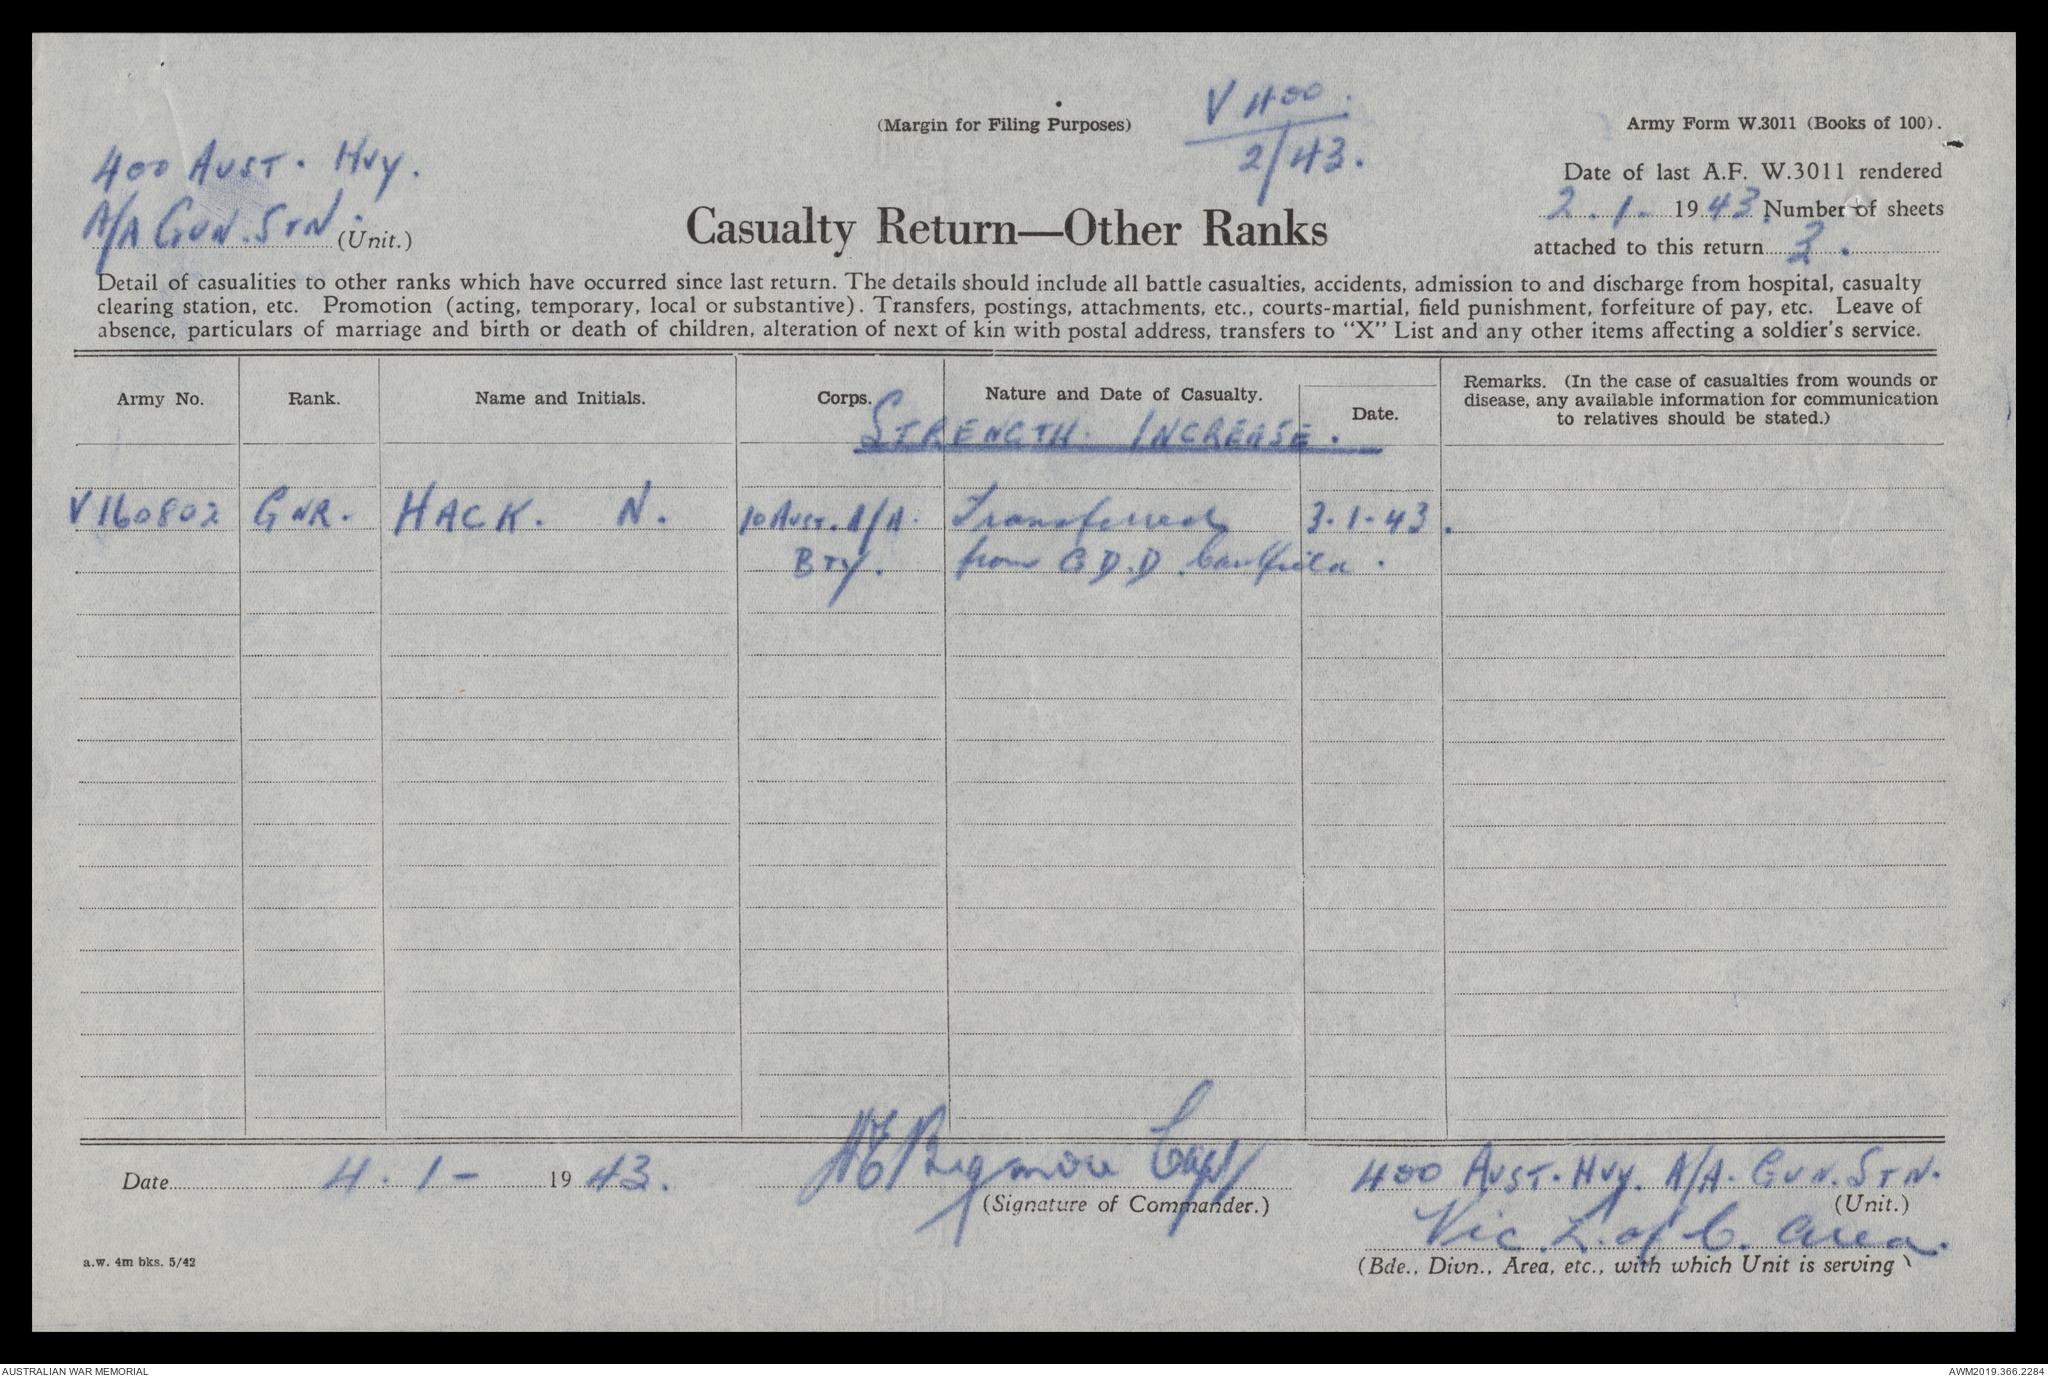 V 400.
(Margin for Filing Purposes)
2/43.
Army Form W.3011 (Books of 100).
400 AUST. HVY.
A/A GUN. STN. (Unit.)
Casualty Return—Other Ranks
Date of last A.F. W.3011 rendered
2.1. 1943. Number of sheets
attached to this return 3.
Detail of casualities to other ranks which have occurred since last return. The details should include all battle casualties, accidents, admission to and discharge from hospital, casualty
clearing station, etc. Promotion (acting, temporary, local or substantive). Transfers, postings, attachments, etc., courts-martial, field punishment, forfeiture of pay, etc. Leave of
absence, particulars of marriage and birth or death of children, alteration of next of kin with postal address, transfers to "X" List and any other items affecting a soldier's service.
Army No. Rank. Name and Initials. Corps. Nature and Date of Casualty. Date. Remarks. (In the case of casualties from wounds or
disease, any available information for communication
to relatives should be stated.)
STRENGTH. INCREASE.
V160802 GNR. HACK. N. 10 AUST. A/A. Transferred 3.1.43.
BTY. from G.D.D. Caulfield.
Date 4.1- 1943. Capt
(Signature of Commander.)
400 AUST. HVY. A/A. GUN. STN.
(Unit.)
Vic. L. of C. Area.
(Bde., Divn., Area, etc., with which Unit is serving)
a.w. 4m bks. 5/42
AUSTRALIAN WAR MEMORIAL
AWM2019.366.2284